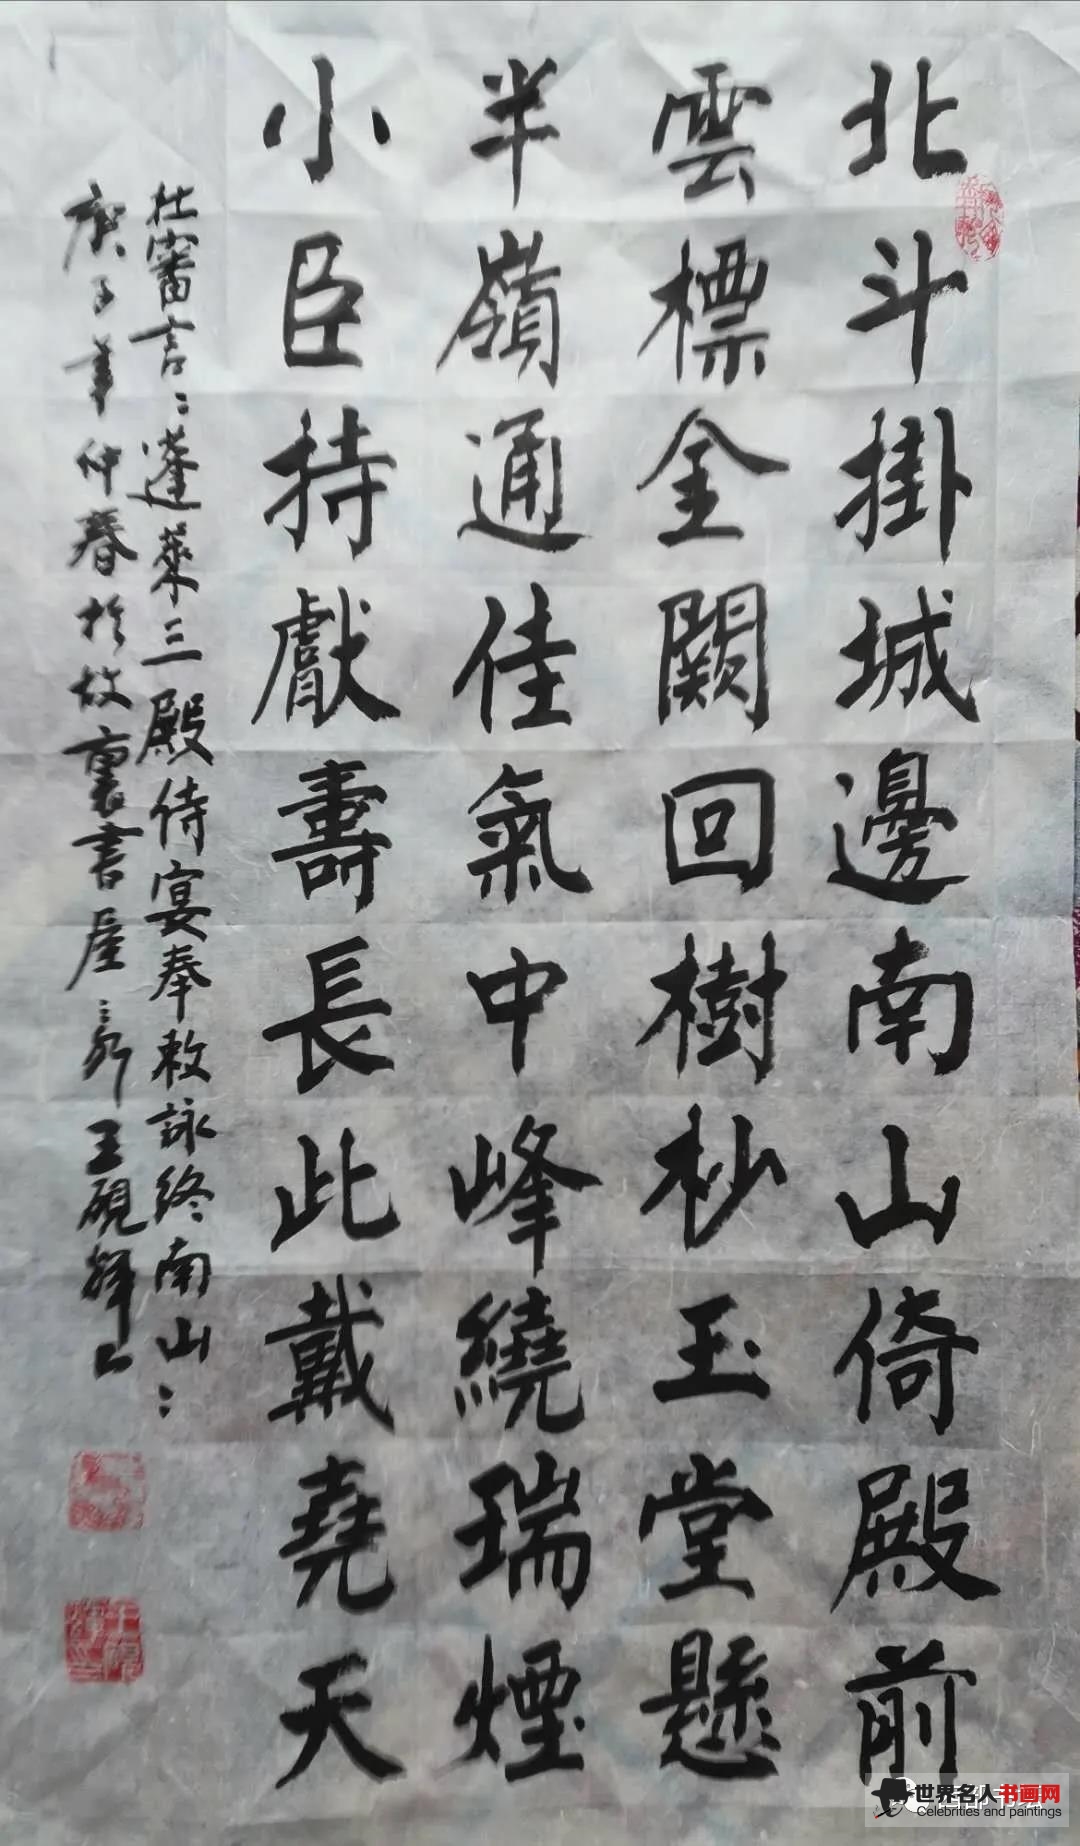 北斗掛城邊南山倚殿前
雲標金闕回樹杪玉堂懸
半嶺通佳氣中峰繞瑞煙
小臣持獻壽長此戴堯天
杜審言:蓬萊三殿侍宴奉敕詠終南山:
庚子年仲春於故裏書屋
王硯輝
世界名人书画网
Celebrities and paintings